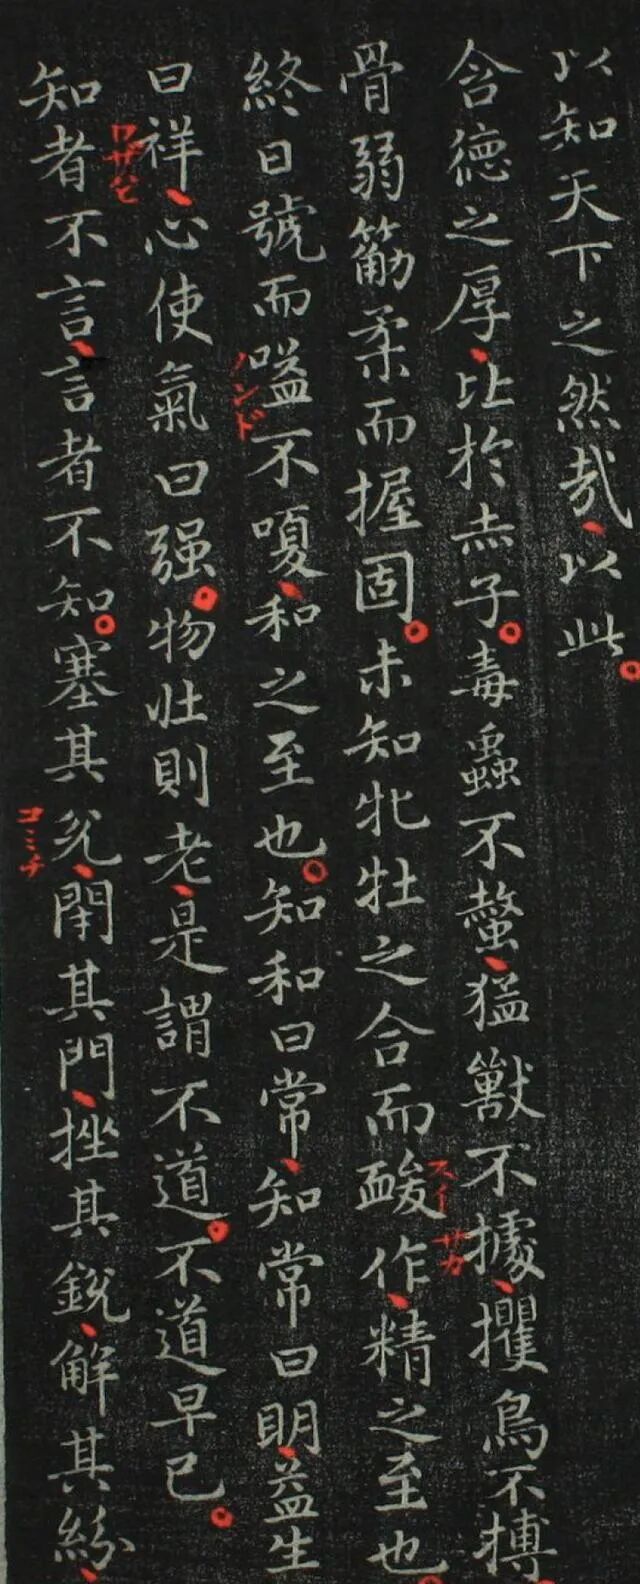 以知天下之然哉以此
含德之厚比於赤子毒蟲不螫猛獸不據攫鳥不搏
骨弱筋柔而握固未知牝牡之合而酸作精之至也
スイ
サカ
終日號而嗌不嗄和之至也知和曰常知常曰明益生
ノンド
曰祥心使氣曰强物壯則老是謂不道不道早已
ワザ
知者不言言者不知塞其兊閇其門挫其銳解其紛
コミチ